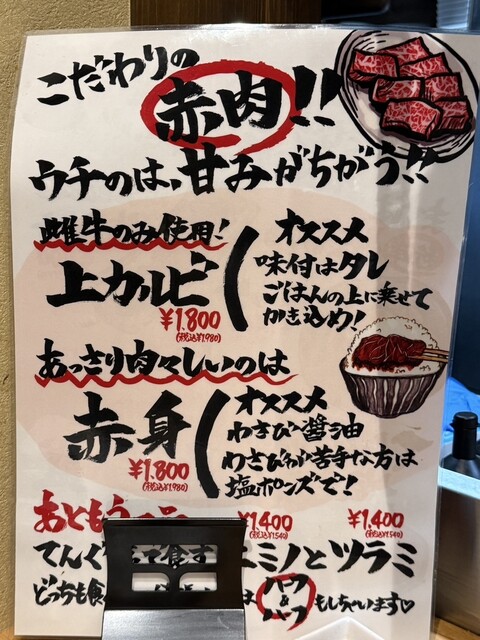 こだわりの
赤肉!!
ウチのは、甘みがちがう!!
雌牛のみ使用!
上カルビ
¥1,800
(税込¥1,980)
オススメ
味付はタレ
ごはんの上に乗せて
かき込め!
あっさり肉々しいのは
赤身
¥1,800
(税込¥1,980)
オススメ
わさび醤油
わさびが苦手な方は
塩ポンズで!
あともう
¥1,400
(税込¥1,540)
¥1,400
(税込¥1,540)
てんぐ で食す ミノとツラミ
どっちも食 は ハーフ&ハーフ もしちゃいます♡